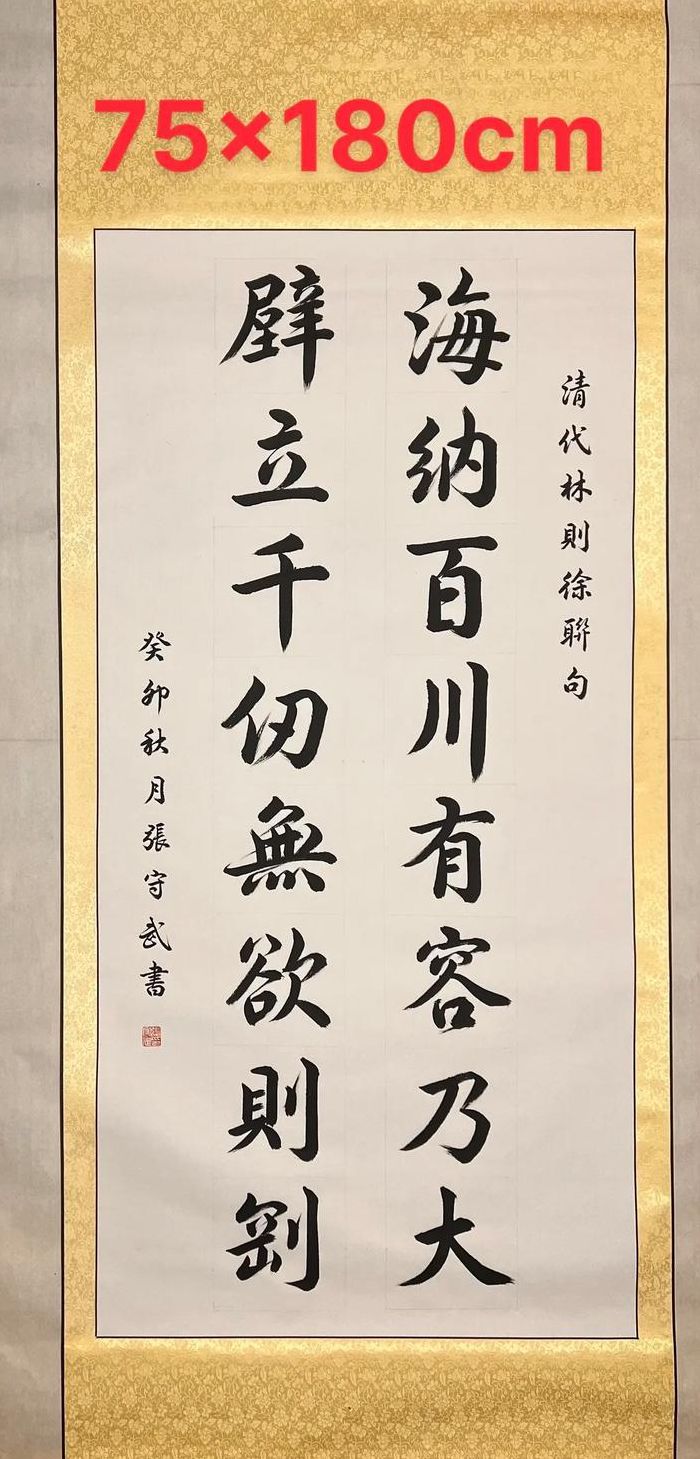 75×180cm
清代林則徐聯句
海納百川有容乃大
壁立千仞無欲則剛
癸卯秋月張守武書